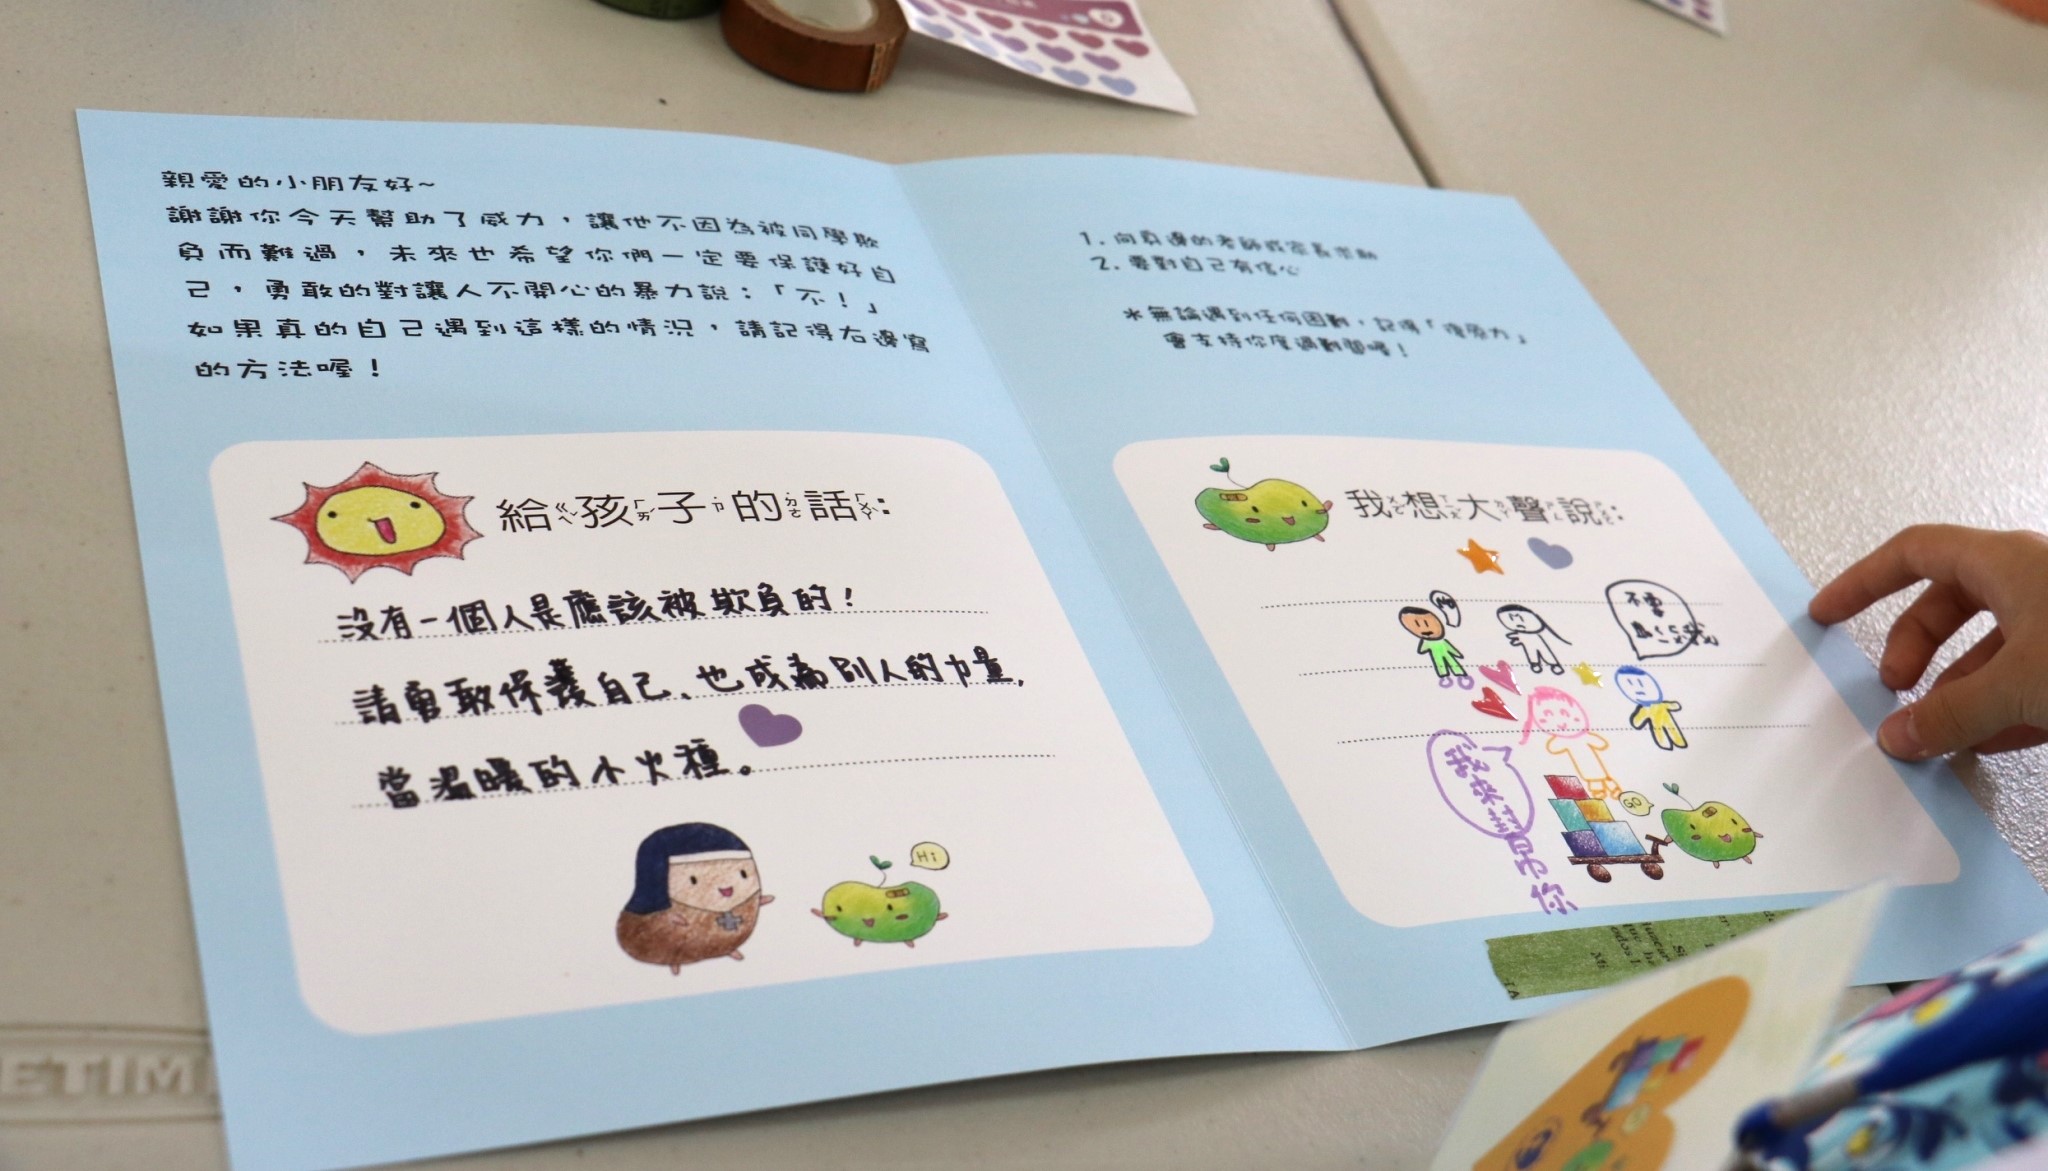 親愛的小朋友好~
謝謝你今天幫助了威力，讓他不因為被同學欺
負而難過，未來也希望你們一定要保護好自
己，勇敢的對讓人不開心的暴力說：「不！」
如果真的自己遇到這樣的情況，請記得右邊寫
的方法喔！
給ㄍㄟˇ孩ㄏㄞˊ子ㄗ˙的ㄉㄜ˙話ㄏㄨㄚˋ：
沒有一個人是應該被欺負的！
請勇敢保護自己、也成為別人的力量，
當溫暖的小火種。
Hi
1. 向身邊的老師或家長求助
2. 要對自己有信心
＊無論遇到任何困難，記得「復原力」
會支持你度過難關喔！
我ㄨㄛˇ想ㄒㄧㄤˇ大ㄉㄚˋ聲ㄕㄥ說ㄕㄨㄛ：
不要
我來幫你
GO
ETIM